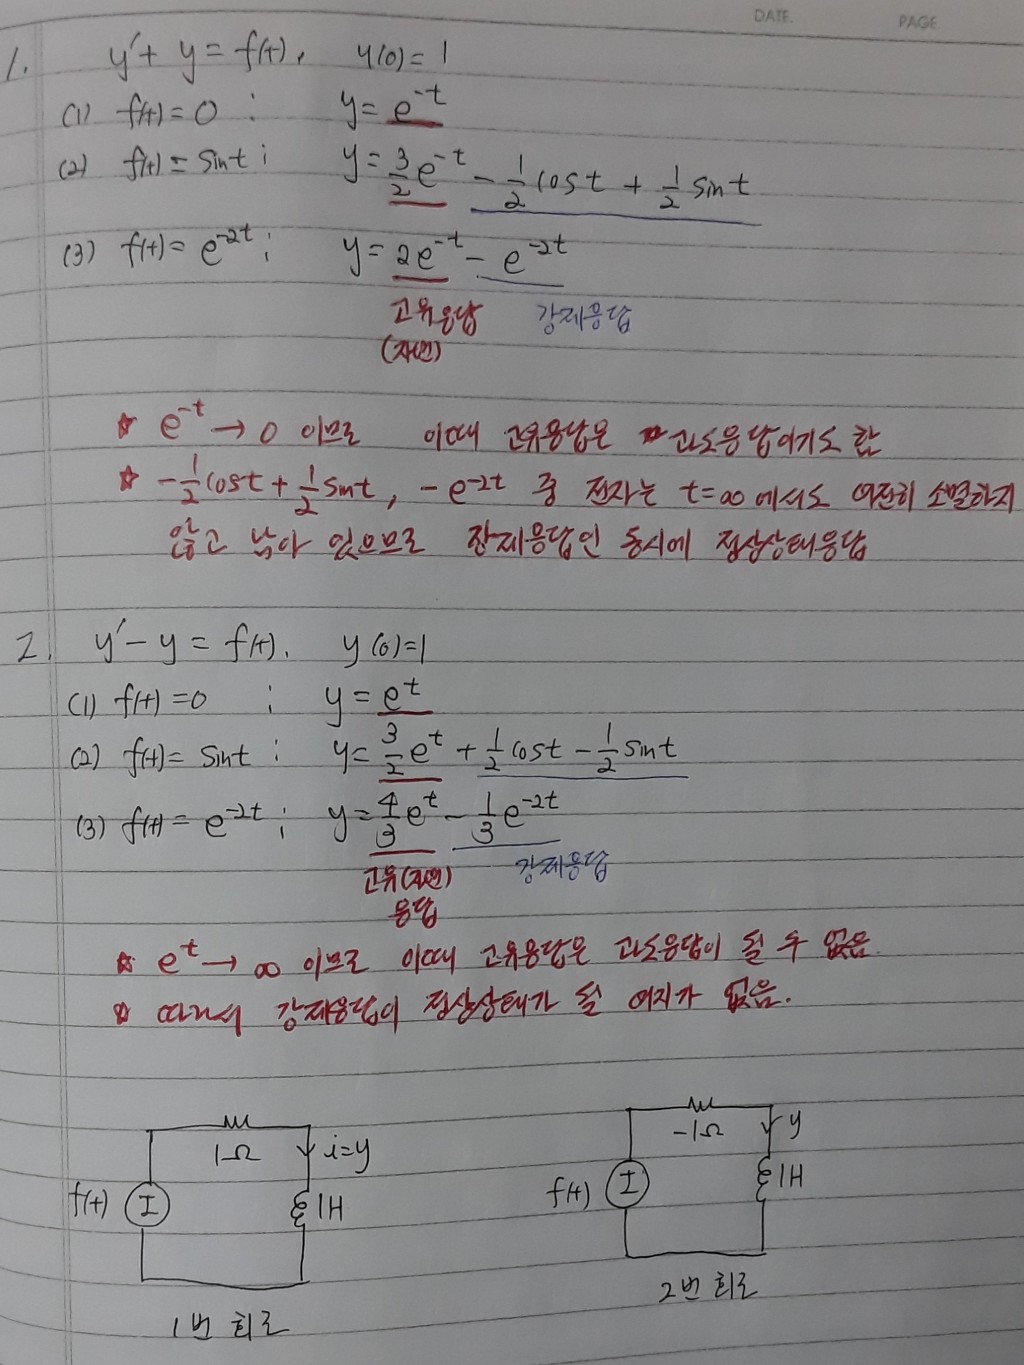 DATE. PAGE
1. y′ + y = f(t), y(0) = 1
(1) f(t) = 0 : y = e^-t
(2) f(t) = sint ; y = 3/2 e^-t - 1/2 cost + 1/2 sint
(3) f(t) = e^-2t ; y = 2e^-t - e^-2t
고유응답 강제응답
(자연)
☆ e^-t → 0 이므로 이때 고유응답은 과도응답이기도 함
☆ -1/2 cost + 1/2 sint, -e^-2t 중 전자는 t=∞ 에서도 여전히 소멸하지
않고 남아 있으므로 강제응답인 동시에 정상상태응답
2. y′ - y = f(t). y(0)=1
(1) f(t) = 0 ; y = e^t
(2) f(t) = sint ; y = 3/2 e^t + 1/2 cost - 1/2 sint
(3) f(t) = e^-2t ; y = 4/3 e^t - 1/3 e^-2t
고유(자연) 강제응답
응답
☆ e^t → ∞ 이므로 이때 고유응답은 과도응답이 될 수 없음.
☆ 따라서 강제응답이 정상상태가 될 여지가 없음.
1Ω i=y
f(t) I 1H
1번 회로
-1Ω y
f(t) I 1H
2번 회로